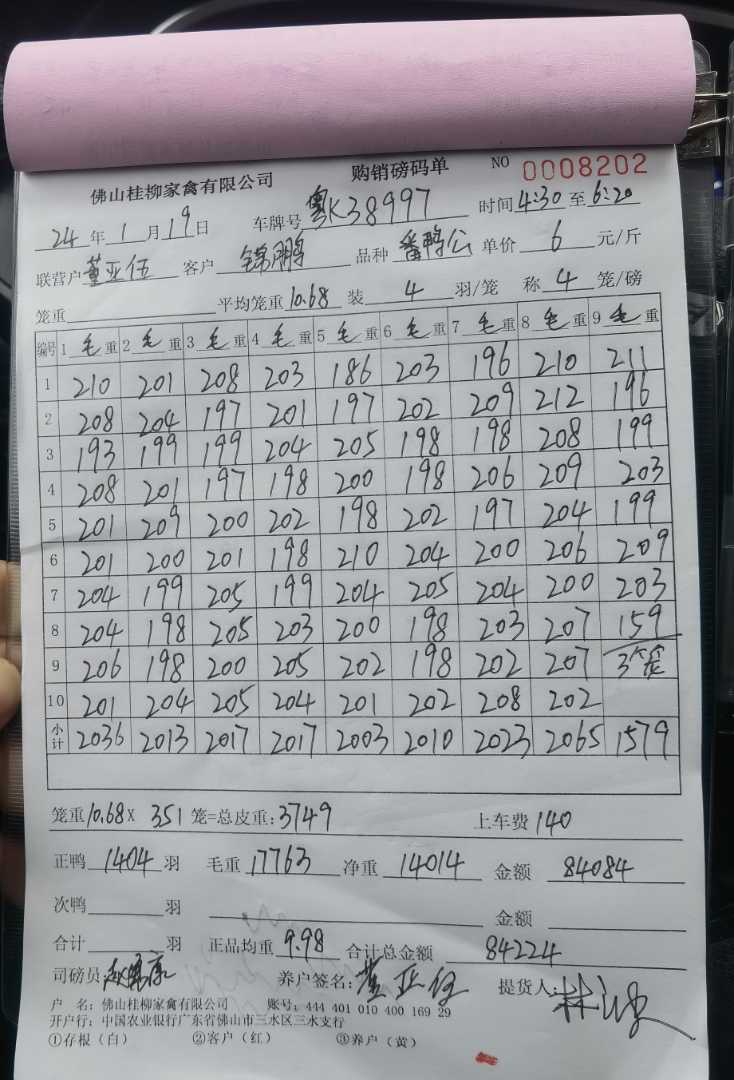 佛山桂柳家禽有限公司 购销磅码单 NO 0008202
24 年 1 月 19 日 车牌号 粤K38997 时间 4:30 至 6:20
联营户 董亚伍 客户 锦鹏 品种 番鸭公 单价 6 元/斤
笼重 平均笼重 10.68 装 4 羽/笼 称 4 笼/磅
编号 1 毛 重 2 毛 重 3 毛 重 4 毛 重 5 毛 重 6 毛 重 7 毛 重 8 毛 重 9 毛 重
1 210 201 208 203 186 203 196 210 211
2 208 204 197 201 197 202 209 212 196
3 193 199 199 204 205 198 198 208 199
4 208 201 197 198 200 198 206 209 203
5 201 209 200 202 198 202 197 204 199
6 201 200 201 198 210 204 200 206 209
7 204 199 205 199 204 205 204 200 203
8 204 198 205 203 200 198 203 207 159
9 206 198 200 205 202 198 202 207 3个笼
10 201 204 205 204 201 202 208 202
小计 2036 2013 2017 2017 2003 2010 2023 2065 1579
笼重 10.68 × 351 笼=总皮重: 3749 上车费 140
正鸭 1404 羽 毛重 17763 净重 14014 金额 84084
次鸭 羽 金额
合计 羽 正品均重 9.98 合计总金额 84224
司磅员 养户签名: 董亚伍 提货人:
户 名: 佛山桂柳家禽有限公司 账号: 444 401 010 400 169 29
开户行: 中国农业银行广东省佛山市三水区三水支行
①存根（白） ②客户（红） ③养户（黄）